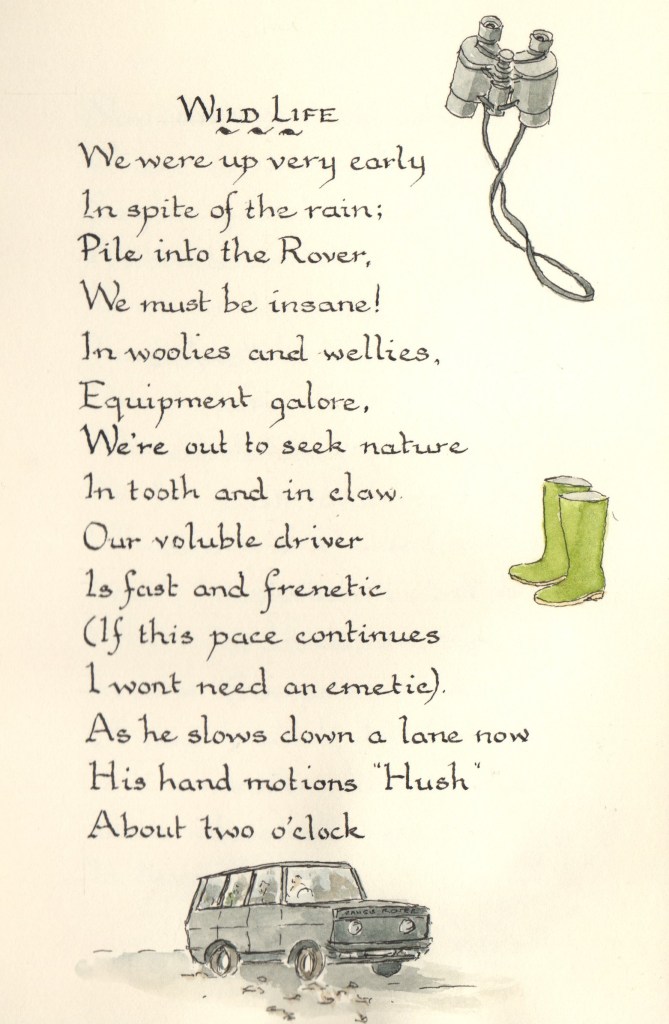 Wild Life
We were up very early
In spite of the rain;
Pile into the Rover,
We must be insane!
In woolies and wellies,
Equipment galore,
We're out to seek nature
In tooth and in claw.
Our voluble driver
Is fast and frenetic
(If this pace continues
I wont need an emetic).
As he slows down a lane now
His hand motions "Hush"
About two o'clock
RANGE ROVER